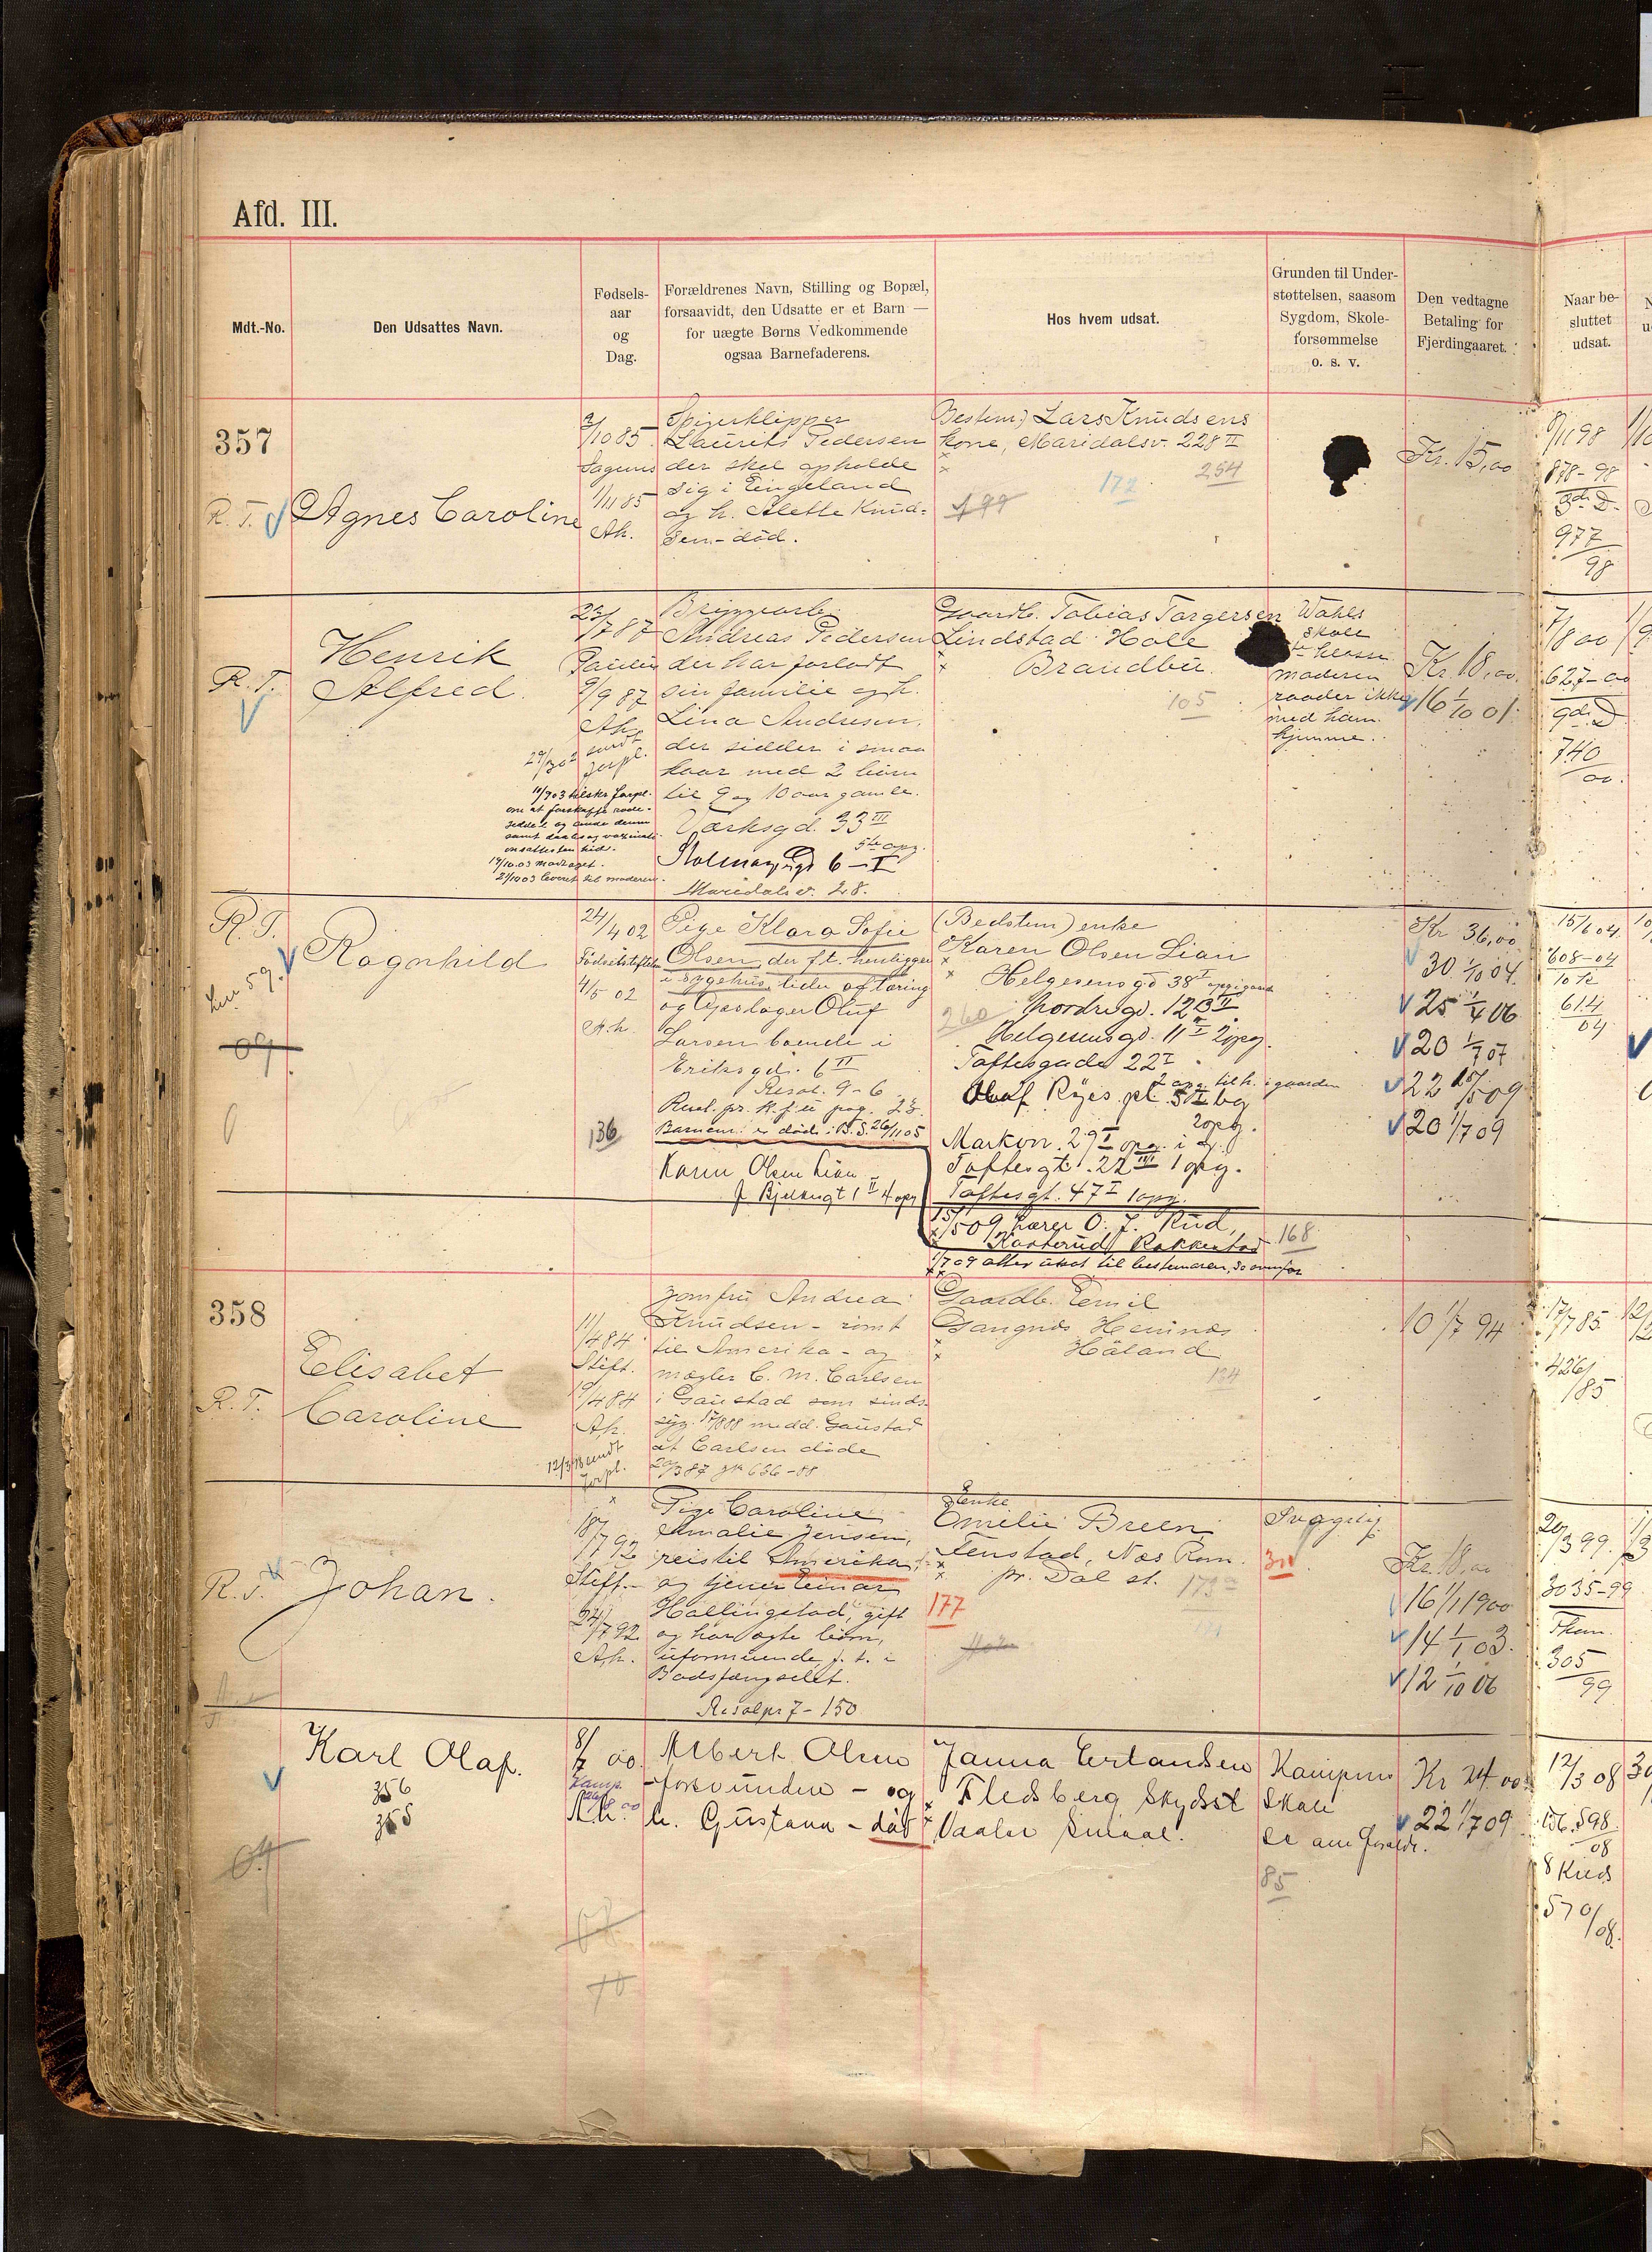 Afd. III.
Mdt.-No.
Den Udsattes Navn.
Fødsels-
aar
og
Dag.
Forældrenes Navn, Stilling og Bopæl,
forsaavidt, den Udsatte er et Barn —
for uægte Børns Vedkommende
ogsaa Barnefaderens.
Hos hvem udsat.
Grunden til Under-
støttelsen, saasom
Sygdom, Skole-
forsømmelse
o. s. v.
Den vedtagne
Betaling for
Fjerdingaaret.
Naar be-
sluttet
udsat.
357
R. T.
Agnes Caroline
2/10 85
1/11 85
Ak.
Spigerklipper
Laurits Pedersen
der skal opholde
sig i Eingeland
og h. Alette Knud-
sen - död.
Bestem) Lars Knudsens
kone, Maridalsv. 228 II
172
254
199
Kr. 15,00
9/11 98
878-98
3die D.
977
98
R. T.
Henrik
Alfred.
23/7 87
Paulus
9/9 87
Ak.
sendt
forpl.
Bryggearb.
Andreas Pedersen
der har forladt
sin familie og h.
Lina Andresen,
der sidder i smaa
kaar med 2 børn
til 9 og 10 aar gamle.
Værksgd. 33 III
5te opg.
6 - I
Maridalsv. 28.
14/10.03 modtaget.
21/10 03 leveret til moderen.
Gaardb. Tobias Torgersen
Lindstad Hole
Brandbu.
105
Wahls
skole
klasse
moderen
raader ikke
med ham
hjemme.
Kr. 18,00.
16 1/10 01.
7/8 00
627-00
9de D.
740
00.
R. T.
Ragnhild
09
24/4 02
Fødselsstiftelsen
4/5 02
A.h.
136
Pige Klara Sofie
Olsen, der f.t. henligger
i sygehus, lider af tæring
og Oluf
Larsen boende i
Eriksgd. 6 II
Resol. 9-6
Resol. pr.
Barnem. er död i B. S. 26/11 05
Karen Olsen Lian
Bjelkesgt 1 II 4 opg
(Bedstem) enke
Karen Olsen Lian
Helgesens gd 38 I
260
Nordregd. 12 B II
Helgesensgd. 11 II 2opg.
Toftesgade 22 I
2 opg. til h. i gaarden
Olaf Ryes pl. 5 II bg
2opg.
Markvn. 29 I opg. i g.
Toftesgt. 22 III 1 opg.
Toftesgt. 47 I 1opg.
15/5 09 O. J. Rud,
Rakkestad
168
1/7 09 atter udsat til bestemoren, se ovenfor
Kr 36,00
30 1/10 04.
25 1/4 06
20 1/7 07
22 15/5 09
20 1/7 09
15/6 04.
608-04
10 de
614
04
358
R. T.
Elisabet
Caroline
11/4 84
Stift.
19/4 84
Ak.
sendt
forpl.
Jomfru Andrea
Knudsen - rømt
til Amerika - og
mægler C. M. Carlsen
i Gaustad som sinds-
syg. 17/8 88 medd. Gaustad
at Carlsen døde
636-88
Gaardb. Emil
Gangnæs Hemnæs
Höland
134
10 1/7 94
17/7 85
426/85
R. T.
Johan.
18/7 92
Stift.
24/7 92
A.h.
Pige Caroline
Amalie Jensen,
reist til Amerika,
og tjener Einar
Hallingstad, gift
og har ægte børn,
uformuende, f. t. i
Bodsfængselet.
Resol pr 7 - 150
Enke
Emilie Breen,
Tenstad, Næs Rom.
pr. Dal st.
177
173
Svagelig
30
Kr. 18,00
16 1/1 1900
14 1/1 03.
12 1/10 06
20/3 99.
3035-99
305
99
Karl Olaf.
356
355
09
8/7 00.
Kamp.
A.h.
Albert Olsen
- forsvunden - og
h. Gustava - död
Janna Erlandsen
Fledsberg Skydsst
Vaaler Smaal.
Kampens
Skole
se am foreldr.
85
Kr 24.00
22 1/7 09
12/3 08
156.598
08
8 Kreds
570/08.
10